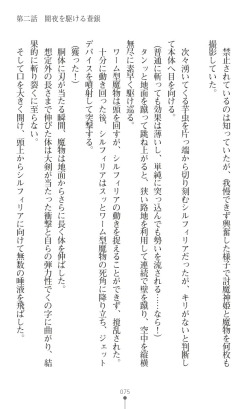 第二話　闇夜を駆ける蒼銀
禁止されているものだが、我慢できず興奮した様子で討魔神姫と魔物を何枚も撮影していた。
次々湧いてくる芋虫を片っ端から切り刻むシルフィリアだったが、キリがないと判断して本体へ目を向ける。
(普通に斬っても効果は薄い、なら突っ込んでも勢いを流される……なら!)
タンッと地面を蹴って跳ね上がると、狭い路地を利用して連続で壁を蹴り、空中を縦横に素早く駆け巡る。
ワーム型魔物は頭を回すが、シルフィリアの動きを捉えることができず、撹乱された。
十分に動きを乱し、シルフィリアはスッとワーム型魔物の死角に降り立ち、ジェットデバイスを噴射して突撃する。
(獲った!)
胴体に刃が当たる瞬間、魔物は地面からさらに長く体を伸ばした。
想定外の長さまで伸びた体は大剣が当たった衝撃と弾力性でくの字に曲がり、効果的に斬り裂くに至らない。
そして口を大きく開け、頭上からシルフィリアに向けて無数の唾液を飛ばした。
075